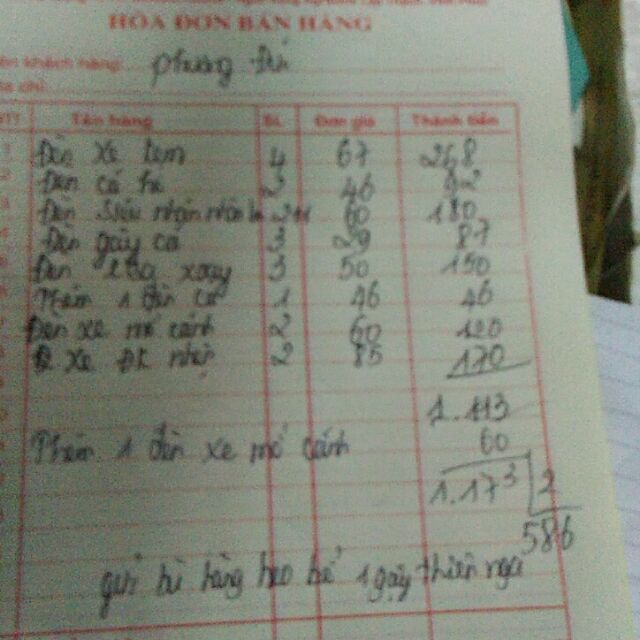 HÓA ĐƠN BÁN HÀNG
khách hàng: phương
chỉ:
TT Tên hàng SL Đơn giá Thành tiền
Đèn xe lon 4 67 268
Đèn cá 46
Đèn siêu nhân 60 180
Đèn gậy cá 3 29 87
Đèn xoay 3 50 150
Thêm 1 đèn cá 1 46 46
Đèn xe mở cánh 2 60 120
Đ xe ĐK 2 85 170
1.113
Thêm 1 đèn xe mở cánh 60
1.173 2
586
gửi hàng 1 gậy thiên nga